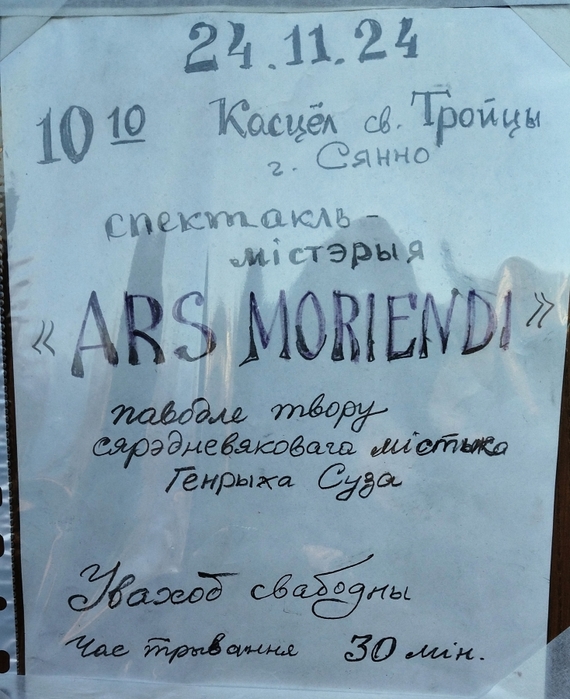 24.11.24
10 10 Касцёл св. Тройцы
г. Сянно
спектакль-
містэрыя
«ARS MORIENDI»
паводле твору
сярэдневяковага містыка
Генрыха Суза
Уваход свабодны
Час трывання 30 мін.